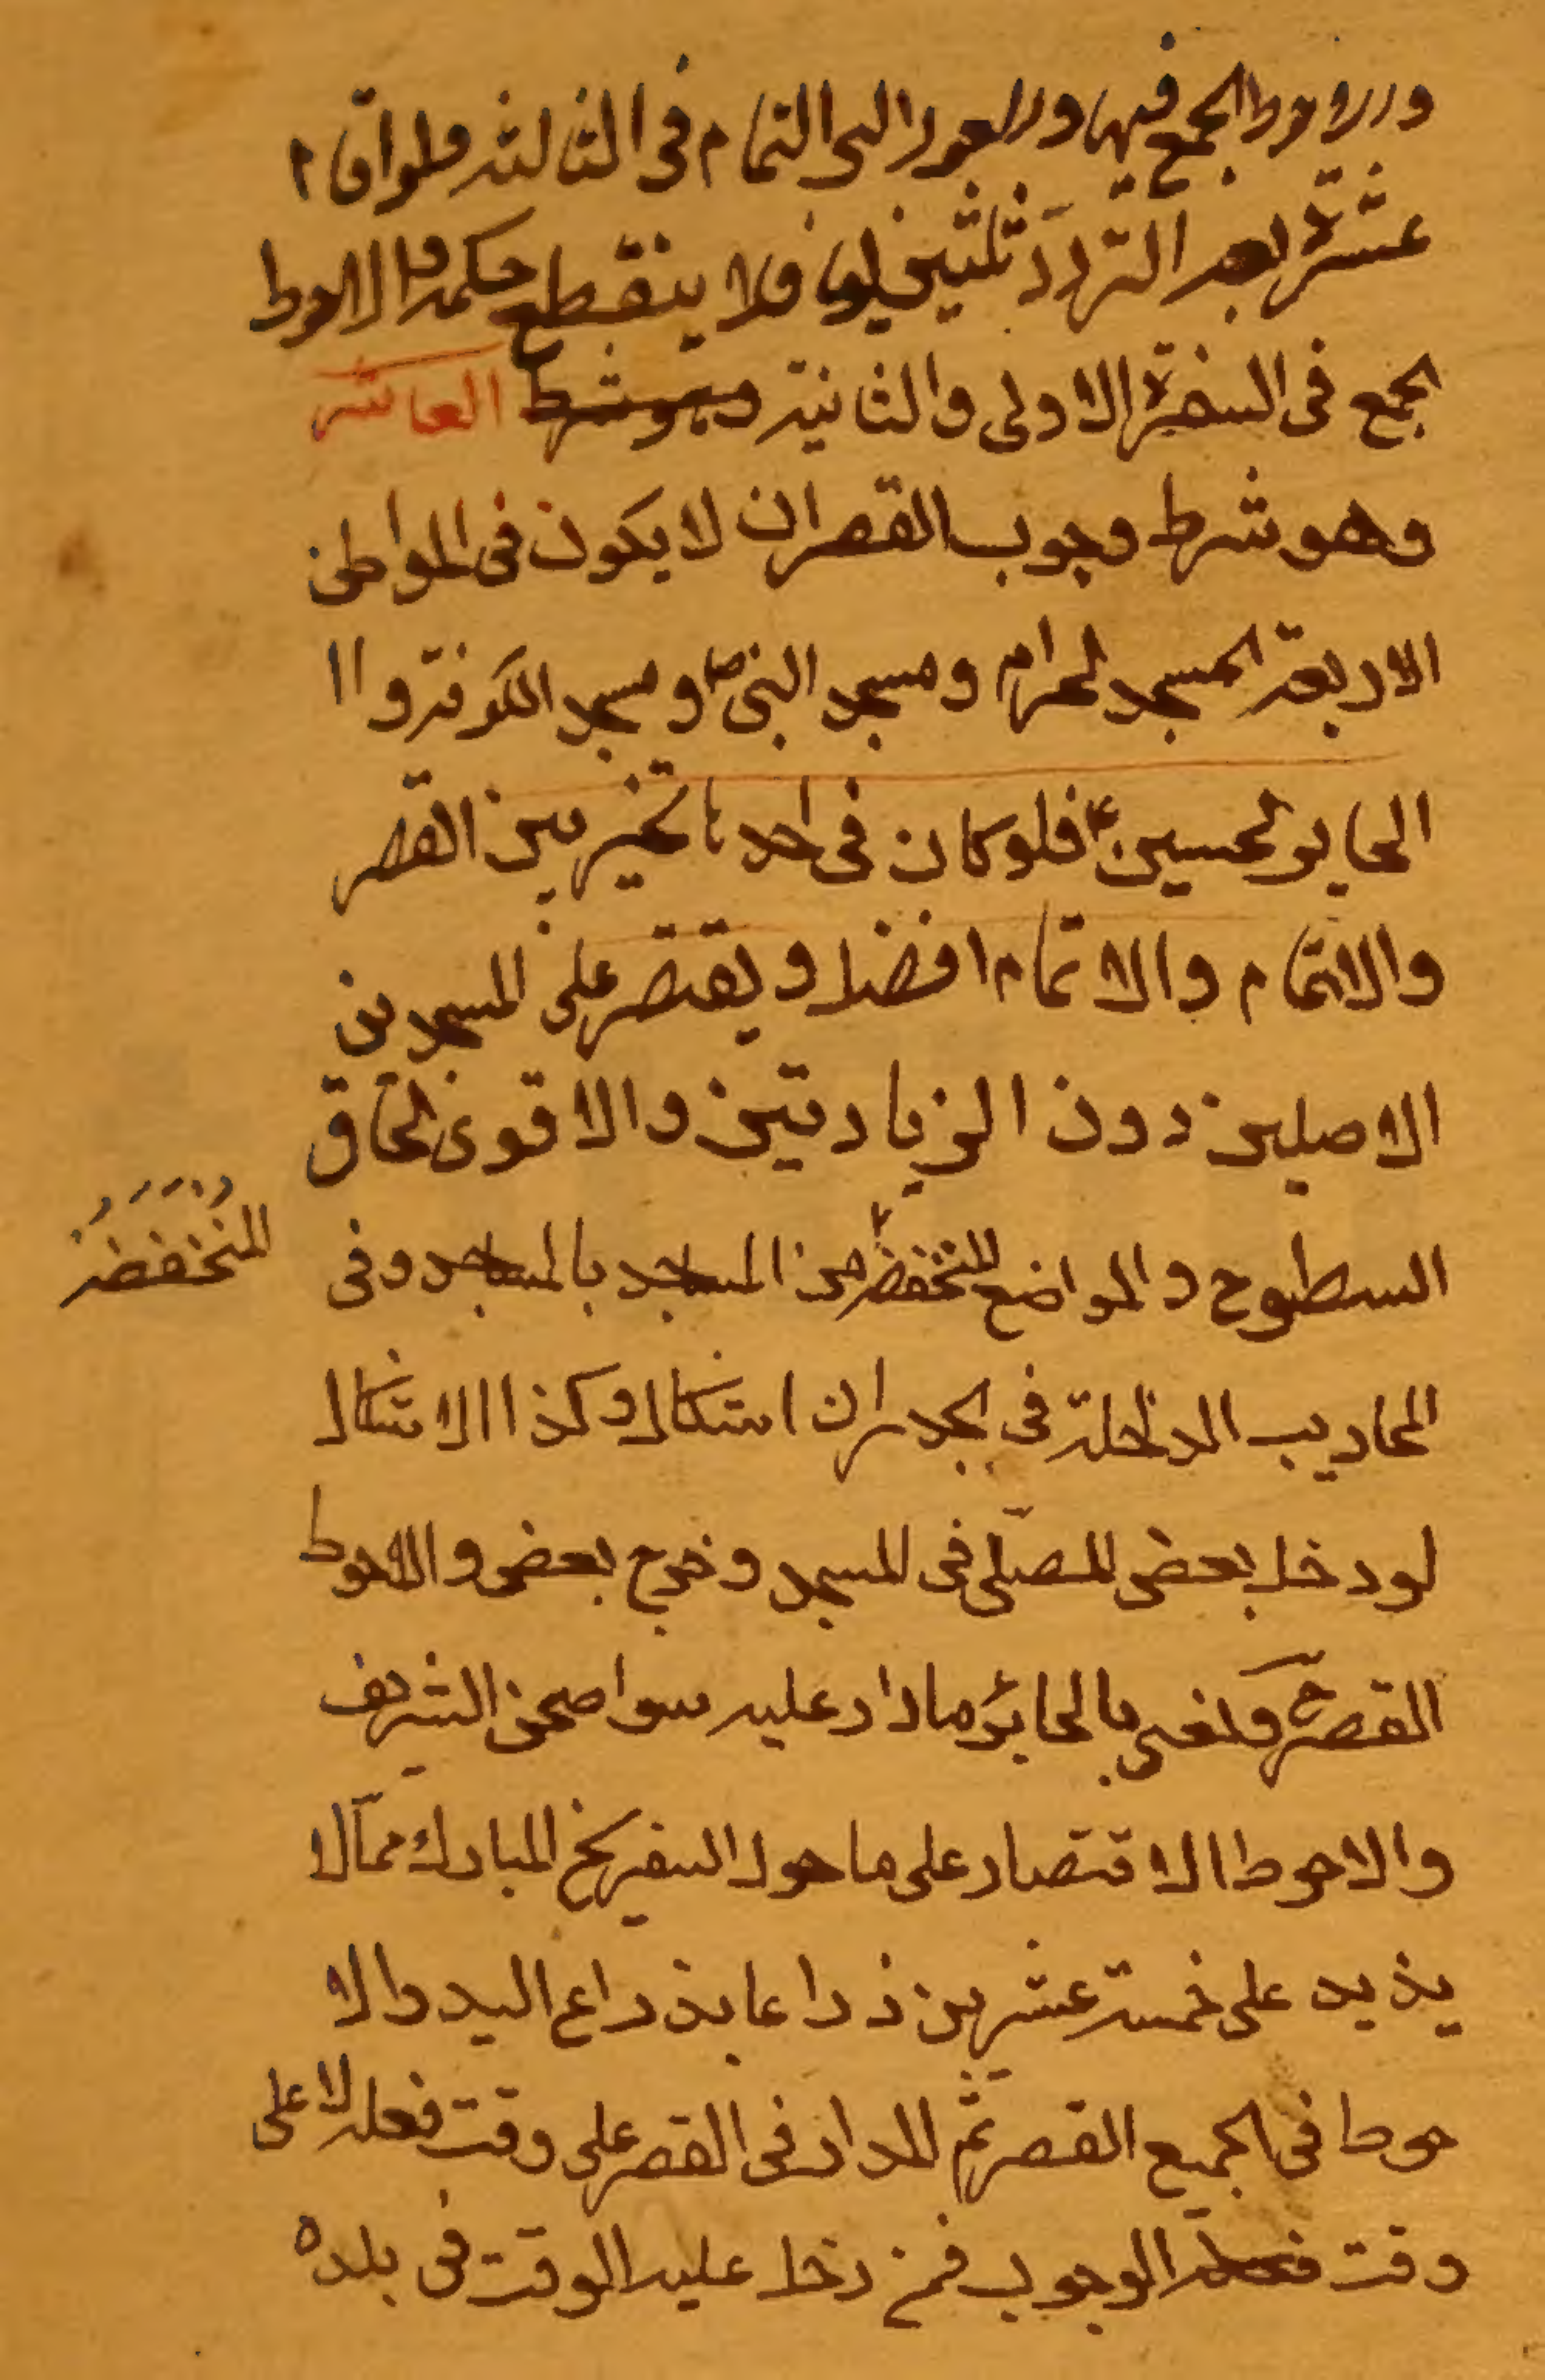 والاحوط الجمع فيها ولا يعود الى التمام فى الثالثه ولو اقام
عشرة بعد التردد ثلثين يوما فلا ينقطع حكمه والاحوط
الجمع فى السفرة الاولى والثانية وهو شرط العاشر
وهو شرط وجوب القصر ان لا يكون فى المواطن
الاربعة المسجد الحرام ومسجد النبى ص ومسجد الكوفة و ا
الحاير الحسين ع فلو كان فى احدها تخير بين القصر
والاتمام والاتمام افضل ويقتصر على المسجدين
الاصلين دون الزيادتين والاقوى لحاق
السطوح والمواضع المنخفضة من المساجد بالمساجد وفى
المنخفضة
المحاريب الداخلة فى الجدران اشكال وكذا الاشكال
لو دخل بعض المصلى فى المسجد وخرج بعض والاحوط
القصر ح ونعنى بالحائر ما دار عليه سوا صحن الشريف
والاحوط الاقتصار على ما حول الضريح المبارك مما لا
يذيد على خمسة عشرين ذراعا بذراع اليد والا
حوط فى الجميع القصر ثم المدار فى القصر على وقت فعله لا على
وقت الوجوب فمن دخل عليه الوقت فى بلده